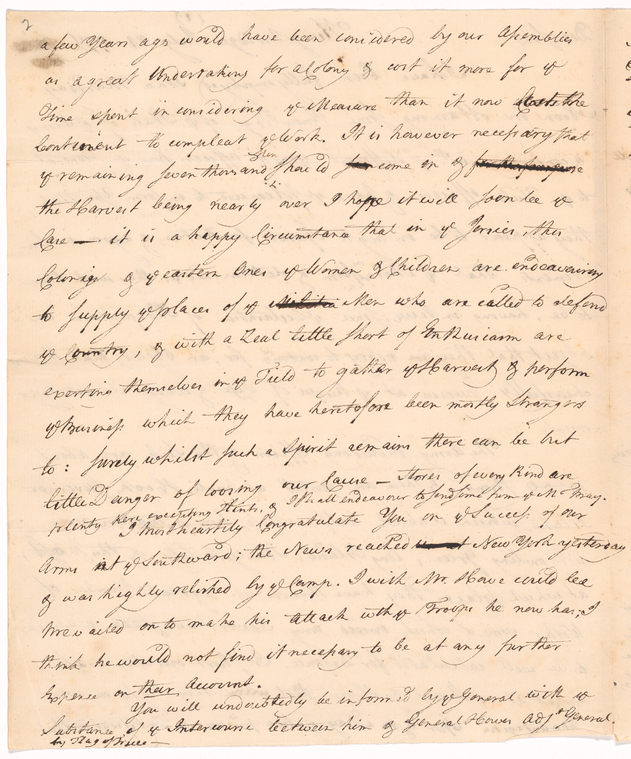 2
a few Years ago would have been considered by our Assemblies
as a great Undertaking for a Colony & cost it more for ye
Time spent in considering ye Measure than it now
Continent to compleat ye Work. It is however necessary that
ye remaining seven thousand Men should come in &
the Harvest being nearly over I hope it will soon be ye
Case — it is a happy Circumstance that in ye Jersies, this
Colony & ye eastern Ones ye Women & Children are endeavouring
to supply ye places of ye Men who are called to defend
ye Country, & with a Zeal little short of Enthusiasm are
exerting themselves in ye Field to gather ye Harvest & perform
ye Business which they have heretofore been mostly Strangers
to: surely whilst such a Spirit remains there can be but
little Danger of loosing our Cause — Stores of every Kind are
plenty here excepting Flints, & I shall endeavour to send some from ye
I most heartily Congratulate You on ye Success of our
Arms at ye Southward; the News reached New York yesterday
& was highly relished by ye Camp. I wish Mr. Howe could be
prevailed on to make his Attack with ye Troops he now has; I
think he would not find it necessary to be at any further
Expence on their Account.
You will undoubtedly be inform'd by ye General with ye
Substance of ye Intercourse between him & General Howes Adjt General.
by Flag of Truce —